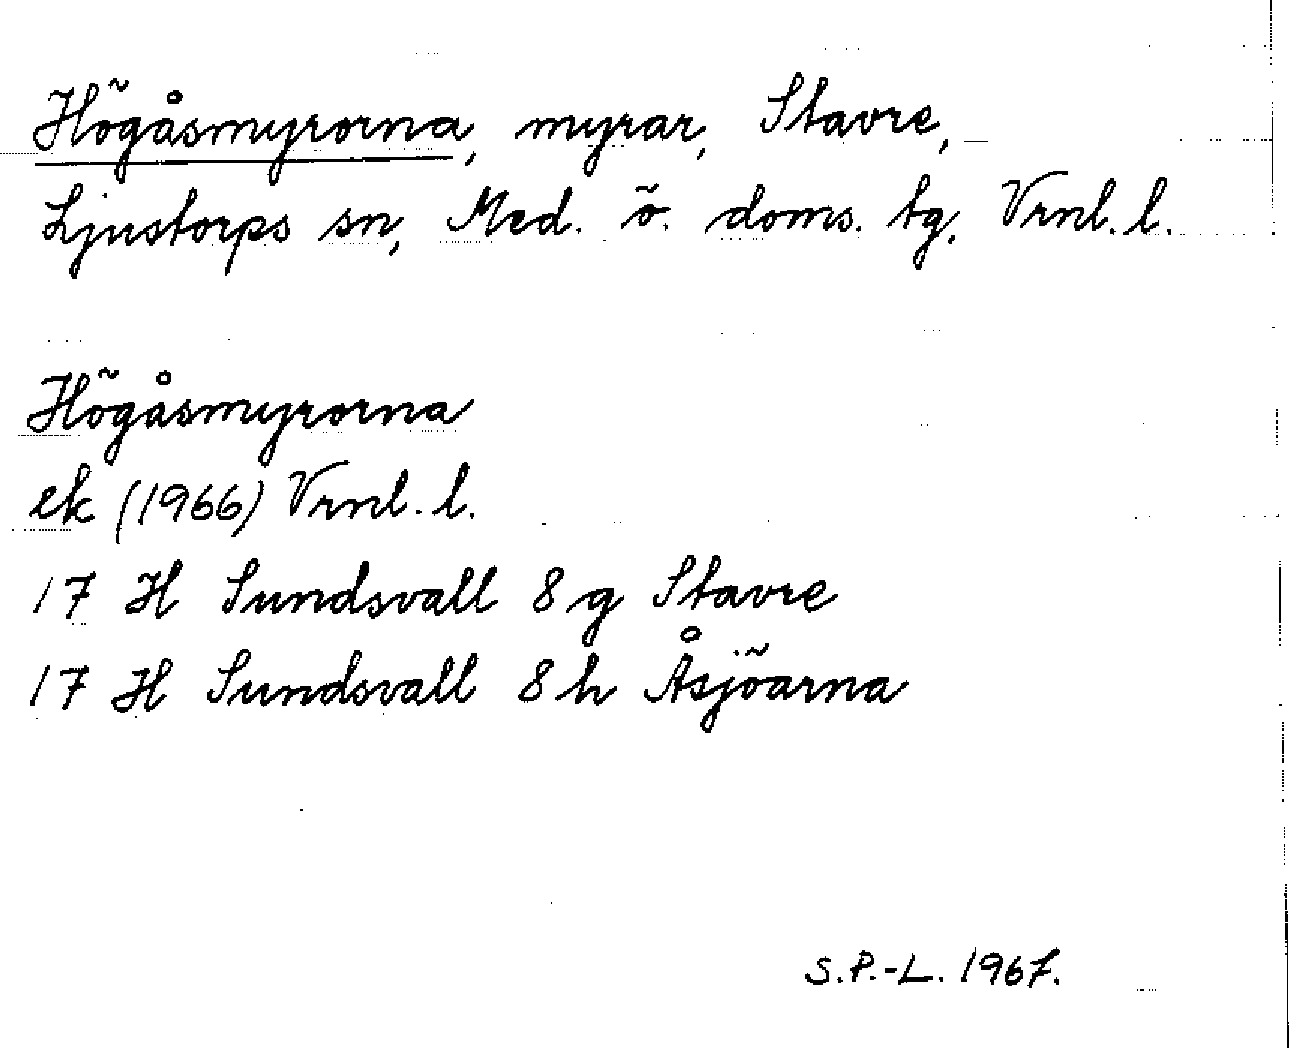 Högåsmyrorna, myrar, Stavre,
Ljustorps sn, Med. ö. doms. tg, Vrnl. l.
Högåsmyrorna
ek (1966) Vrnl. l.
17 H Sundsvall 8 g Stavre
17 H Sundsvall 8 h Åsjöarna
S.P.-L. 1967.